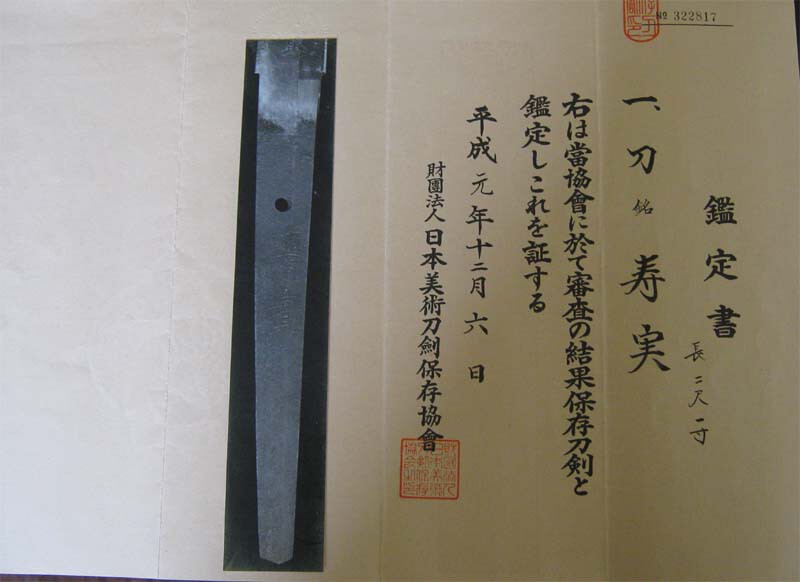 № 322817
鑑定書
一、刀 銘 寿実
長 二尺一寸
右は當協會に於て審査の結果保存刀剣と
鑑定しこれを証する
平成元年十二月六日
財團法人日本美術刀劍保存協會